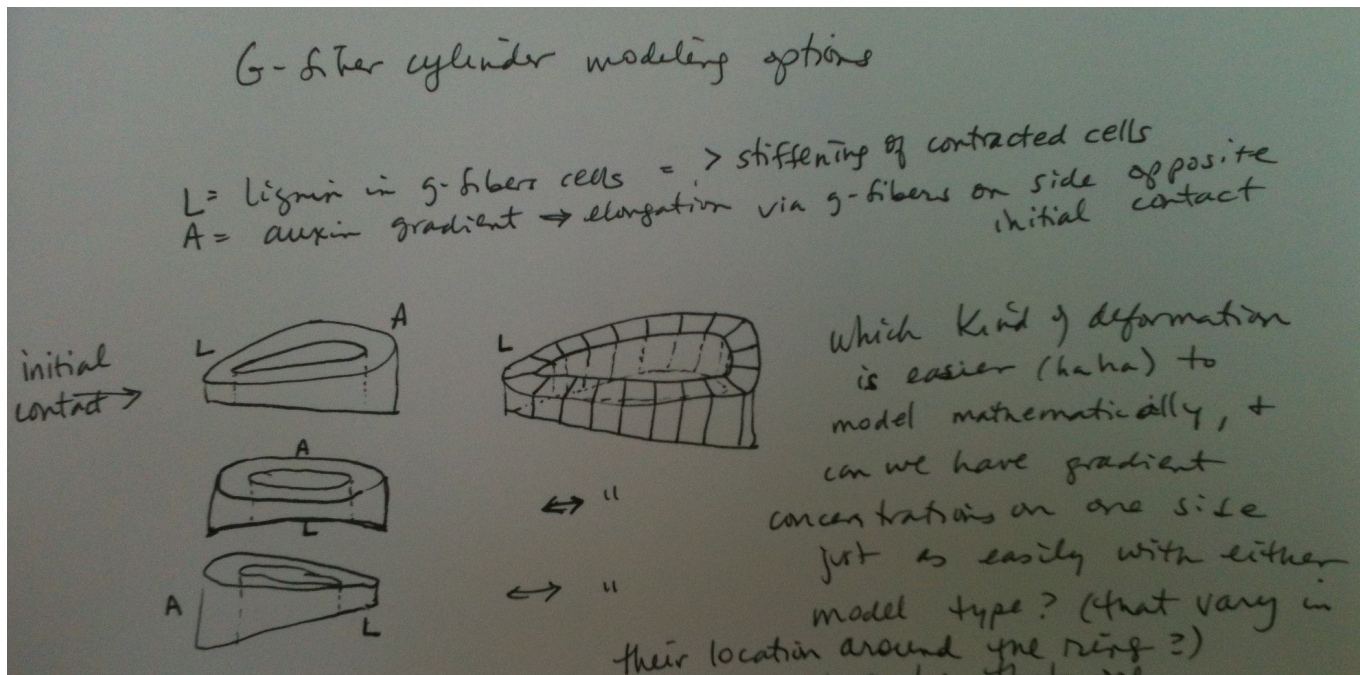 G-fiber cylinder modeling options
L = lignin in g-fibers cells => stiffening of contracted cells
A = auxin gradient ⇒ elongation via g-fibers on side opposite
initial contact
initial
contact →
L
A
L
A
L
↔ "
A
L
↔ "
Which kind of deformation
is easier (haha) to
model mathematically, +
can we have gradient
concentrations on one side
just as easily with either
model type? (that vary in
their location around the ring?)